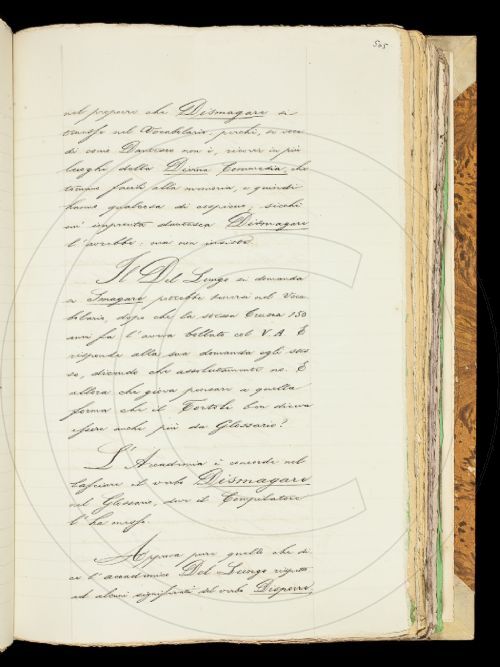 505
nel proporre che Dismagare si
trovasse nel Vocabolario, perchè, se voce
di conio Dantesco non è, ricorre in più
luoghi della Divina Commedia che
tornano facili alla memoria, e quindi
hanno qualcosa di cospicuo, sicchè
un'impronta dantesca Dismagare
l'avrebbe: ma non insiste.
Il Del Lungo si domanda
se Smagare potrebbe tornare nel Voca
bolario, dopo che la stessa Crusca 150
anni fa l'aveva bollato col V. A. E
risponde alla sua domanda egli stes
so, dicendo che assolutamente no. E
allora che giova pensare a quella
forma che il Tortoli ben diceva
essere anche più da Glossario?
L'Accademia è concorde nel
lasciare il verbo Dismagare
nel Glossario, dove il Compilatore
l'ha messo.
Approva pure quello che di
ce l'accademico Del Lungo rispetto
ad alcuni significati del verbo Disporre,